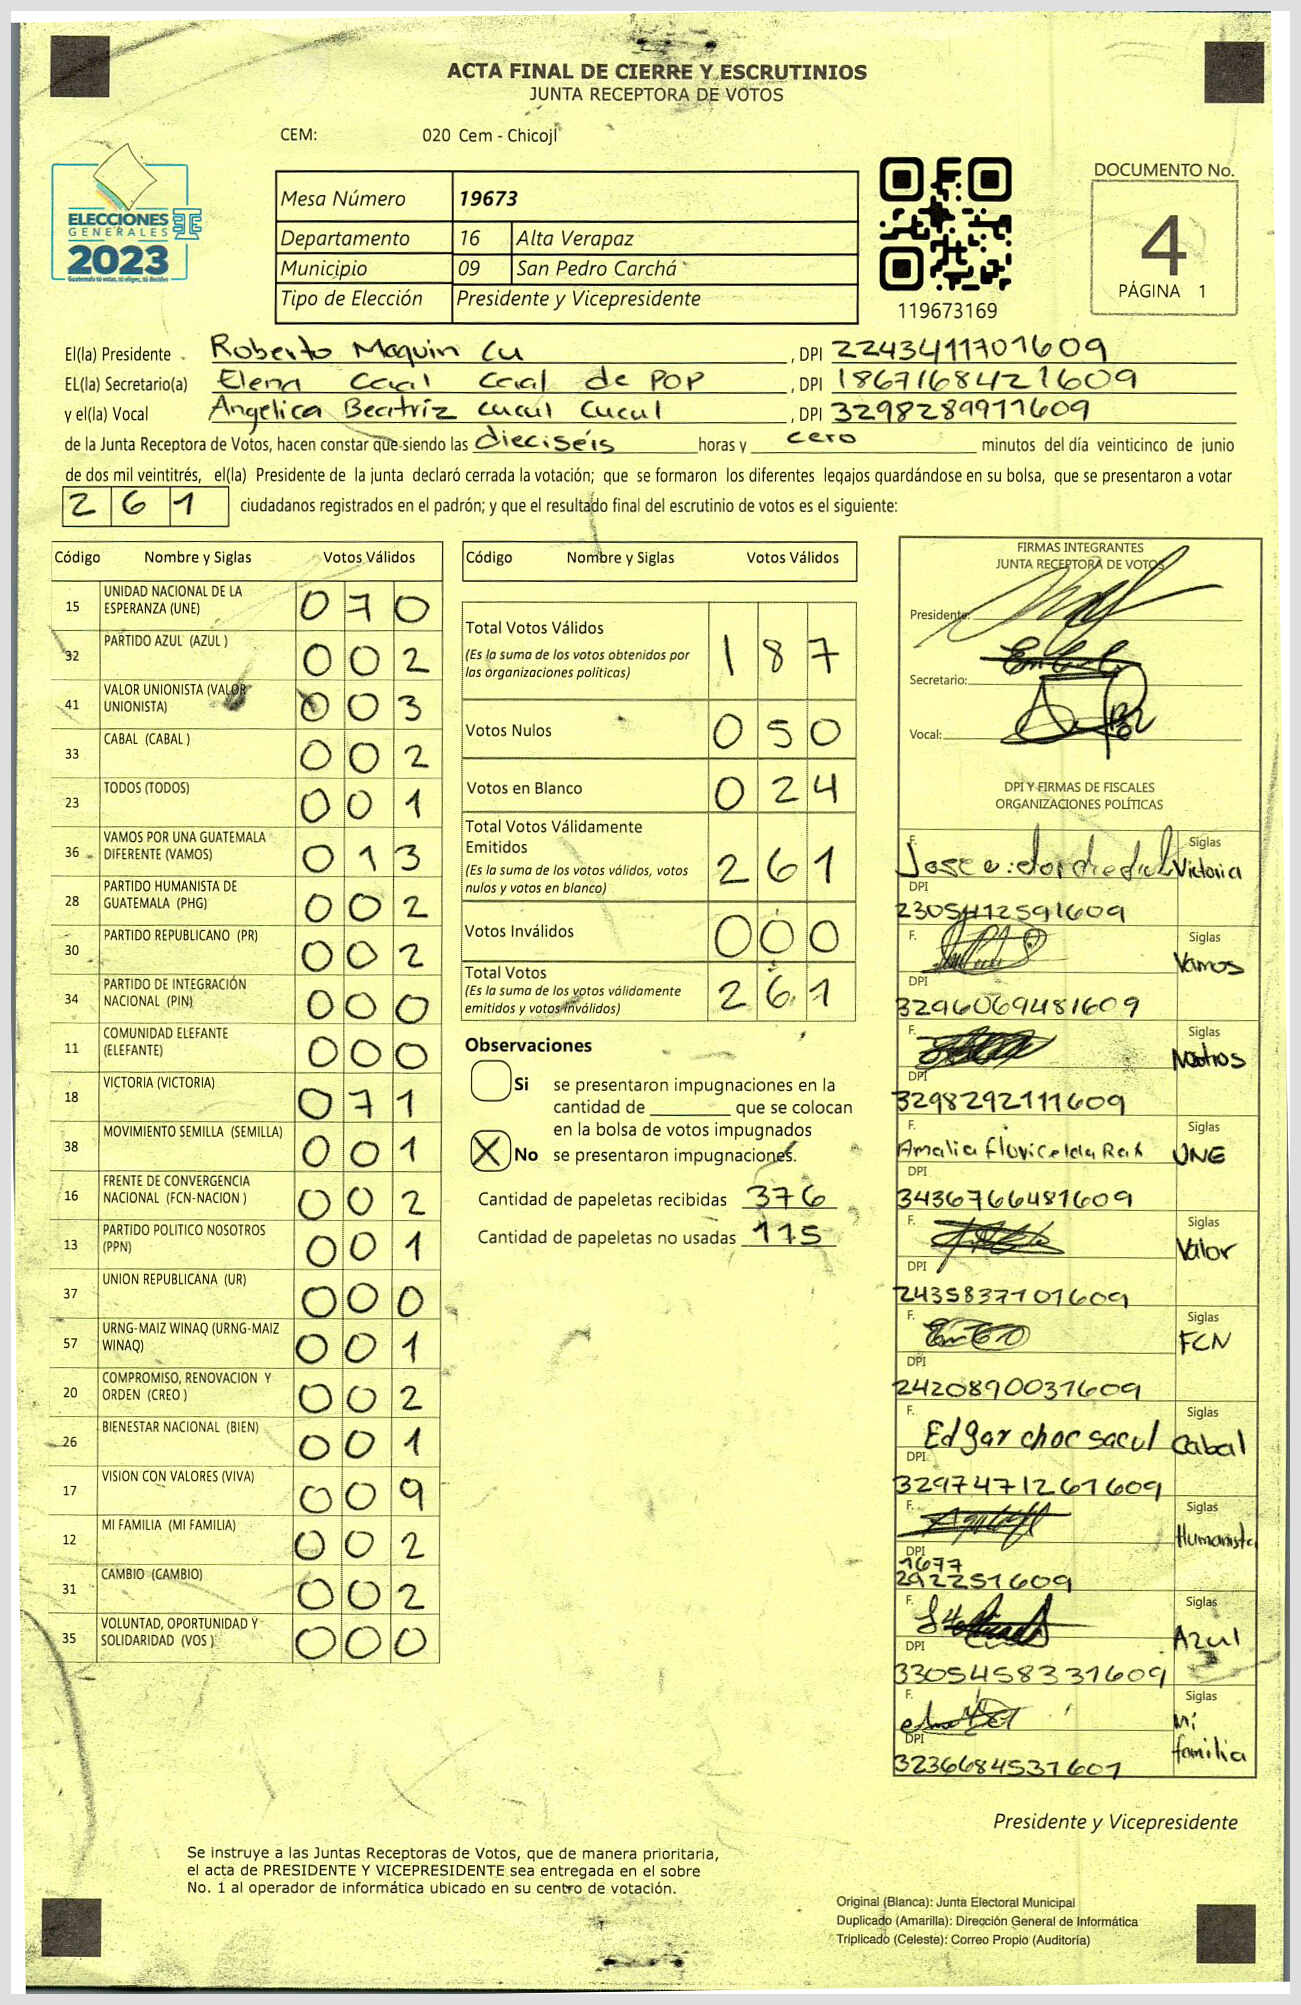 ACTA FINAL DE CIERRE Y ESCRUTINIOS
JUNTA RECEPTORA DE VOTOS
CEM: 020 Cem - Chicojl
ELECCIONES
GENERALES
2023
Guatemala tú votas, tú eliges, tú decides
Mesa Número 19673
Departamento 16 Alta Verapaz
Municipio 09 San Pedro Carchá
Tipo de Elección Presidente y Vicepresidente
119673169
DOCUMENTO No.
4
PÁGINA 1
El(la) Presidente Roberto Maquin Cu , DPI 2243411701609
EL(la) Secretario(a) Elena Caal Caal de POP , DPI 1867168421609
y el(la) Vocal Angelica Beatriz Cucul Cucul , DPI 3298289911609
de la Junta Receptora de Votos, hacen constar que siendo las dieciséis horas y cero minutos del día veinticinco de junio
de dos mil veintitrés, el(la) Presidente de la junta declaró cerrada la votación; que se formaron los diferentes legajos guardándose en su bolsa, que se presentaron a votar
261 ciudadanos registrados en el padrón; y que el resultado final del escrutinio de votos es el siguiente:
Código Nombre y Siglas Votos Válidos
15 UNIDAD NACIONAL DE LA ESPERANZA (UNE) 070
32 PARTIDO AZUL (AZUL ) 002
41 VALOR UNIONISTA (VALOR UNIONISTA) 003
33 CABAL (CABAL ) 002
23 TODOS (TODOS) 001
36 VAMOS POR UNA GUATEMALA DIFERENTE (VAMOS) 013
28 PARTIDO HUMANISTA DE GUATEMALA (PHG) 002
30 PARTIDO REPUBLICANO (PR) 002
34 PARTIDO DE INTEGRACIÓN NACIONAL (PIN) 000
11 COMUNIDAD ELEFANTE (ELEFANTE) 000
18 VICTORIA (VICTORIA) 071
38 MOVIMIENTO SEMILLA (SEMILLA) 001
16 FRENTE DE CONVERGENCIA NACIONAL (FCN-NACION ) 002
13 PARTIDO POLITICO NOSOTROS (PPN) 001
37 UNION REPUBLICANA (UR) 000
57 URNG-MAIZ WINAQ (URNG-MAIZ WINAQ) 001
20 COMPROMISO, RENOVACION Y ORDEN (CREO ) 002
26 BIENESTAR NACIONAL (BIEN) 001
17 VISION CON VALORES (VIVA) 009
12 MI FAMILIA (MI FAMILIA) 002
31 CAMBIO (CAMBIO) 002
35 VOLUNTAD, OPORTUNIDAD Y SOLIDARIDAD (VOS ) 000
Código Nombre y Siglas Votos Válidos
Total Votos Válidos 187
(Es la suma de los votos obtenidos por
las organizaciones políticas)
Votos Nulos 050
Votos en Blanco 024
Total Votos Válidamente
Emitidos 261
(Es la suma de los votos válidos, votos
nulos y votos en blanco)
Votos Inválidos 000
Total Votos 261
(Es la suma de los votos válidamente
emitidos y votos inválidos)
Observaciones
Si se presentaron impugnaciones en la
cantidad de ________ que se colocan
en la bolsa de votos impugnados
X No se presentaron impugnaciones.
Cantidad de papeletas recibidas 376
Cantidad de papeletas no usadas 115
FIRMAS INTEGRANTES
JUNTA RECEPTORA DE VOTOS
Presidente:
Secretario:
Vocal:
DPI Y FIRMAS DE FISCALES
ORGANIZACIONES POLÍTICAS
F. Siglas Victoria
DPI
F. Siglas Vamos
DPI
3296069481609
F. Siglas Nosotros
DPI
3298292111609
F. Amalia Siglas UNE
DPI
3436766481609
F. Siglas Valor
DPI
2435837101609
F. Siglas FCN
DPI
2420890031609
F. Edgar choc sacul Siglas Cabal
DPI
3297471261609
F. Siglas Humanista
DPI
1677
292251609
F. Siglas Azul
DPI
3305458331609
F. Siglas Mi familia
DPI
3236684531601
Presidente y Vicepresidente
Se instruye a las Juntas Receptoras de Votos, que de manera prioritaria,
el acta de PRESIDENTE Y VICEPRESIDENTE sea entregada en el sobre
No. 1 al operador de informática ubicado en su centro de votación.
Original (Blanca): Junta Electoral Municipal
Duplicado (Amarilla): Dirección General de Informática
Triplicado (Celeste): Correo Propio (Auditoría)